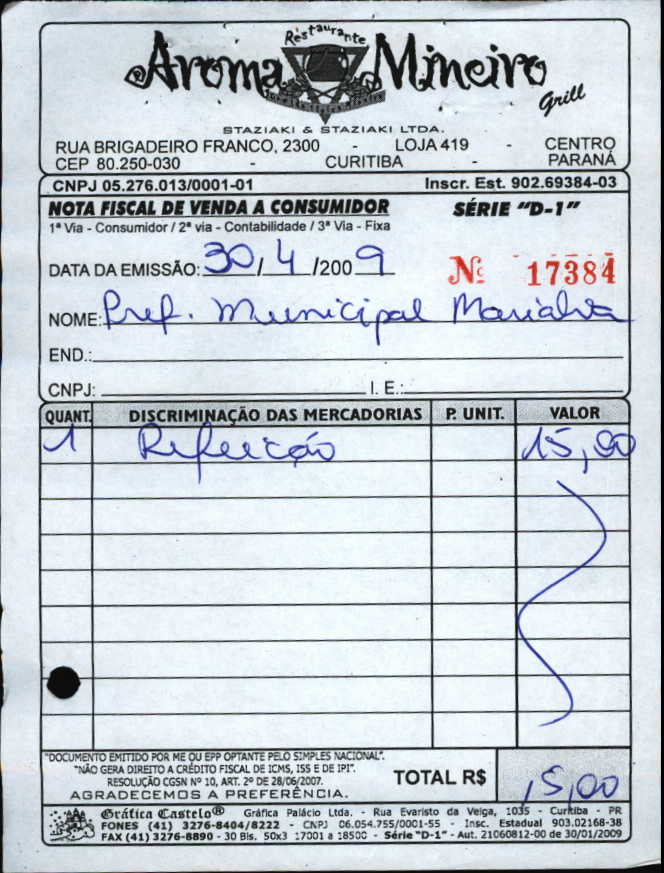 Restaurante
®Aroma Mineiro
Grill
STAZIAKI & STAZIAKI LTDA.
RUA BRIGADEIRO FRANCO, 2300 - LOJA 419 - CENTRO
CEP 80.250-030 - CURITIBA - PARANÁ
CNPJ 05.276.013/0001-01 Inscr. Est. 902.69384-03
NOTA FISCAL DE VENDA A CONSUMIDOR SÉRIE "D-1"
1ª Via - Consumidor / 2ª via - Contabilidade / 3ª Via - Fixa
DATA DA EMISSÃO: 30/4/2009 Nº 17384
NOME: Pref. Municipal Marialva
END.:
CNPJ: I. E.:
QUANT. DISCRIMINAÇÃO DAS MERCADORIAS P. UNIT. VALOR
1 Refeição 15,00
"DOCUMENTO EMITIDO POR ME OU EPP OPTANTE PELO SIMPLES NACIONAL".
"NÃO GERA DIREITO A CRÉDITO FISCAL DE ICMS, ISS E DE IPI".
RESOLUÇÃO CGSN Nº 10, ART. 2º DE 28/06/2007.
AGRADECEMOS A PREFERÊNCIA.
TOTAL R$ 15,00
Gráfica Castelo® Gráfica Palácio Ltda. - Rua Evaristo da Veiga, 1035 - Curitiba - PR
FONES (41) 3276-8404/8222 - CNPJ 06.054.755/0001-55 - Insc. Estadual 903.02168-38
FAX (41) 3276-8890 - 30 Bls. 50x3 17001 a 18500 - Série "D-1" - Aut. 21060812-00 de 30/01/2009